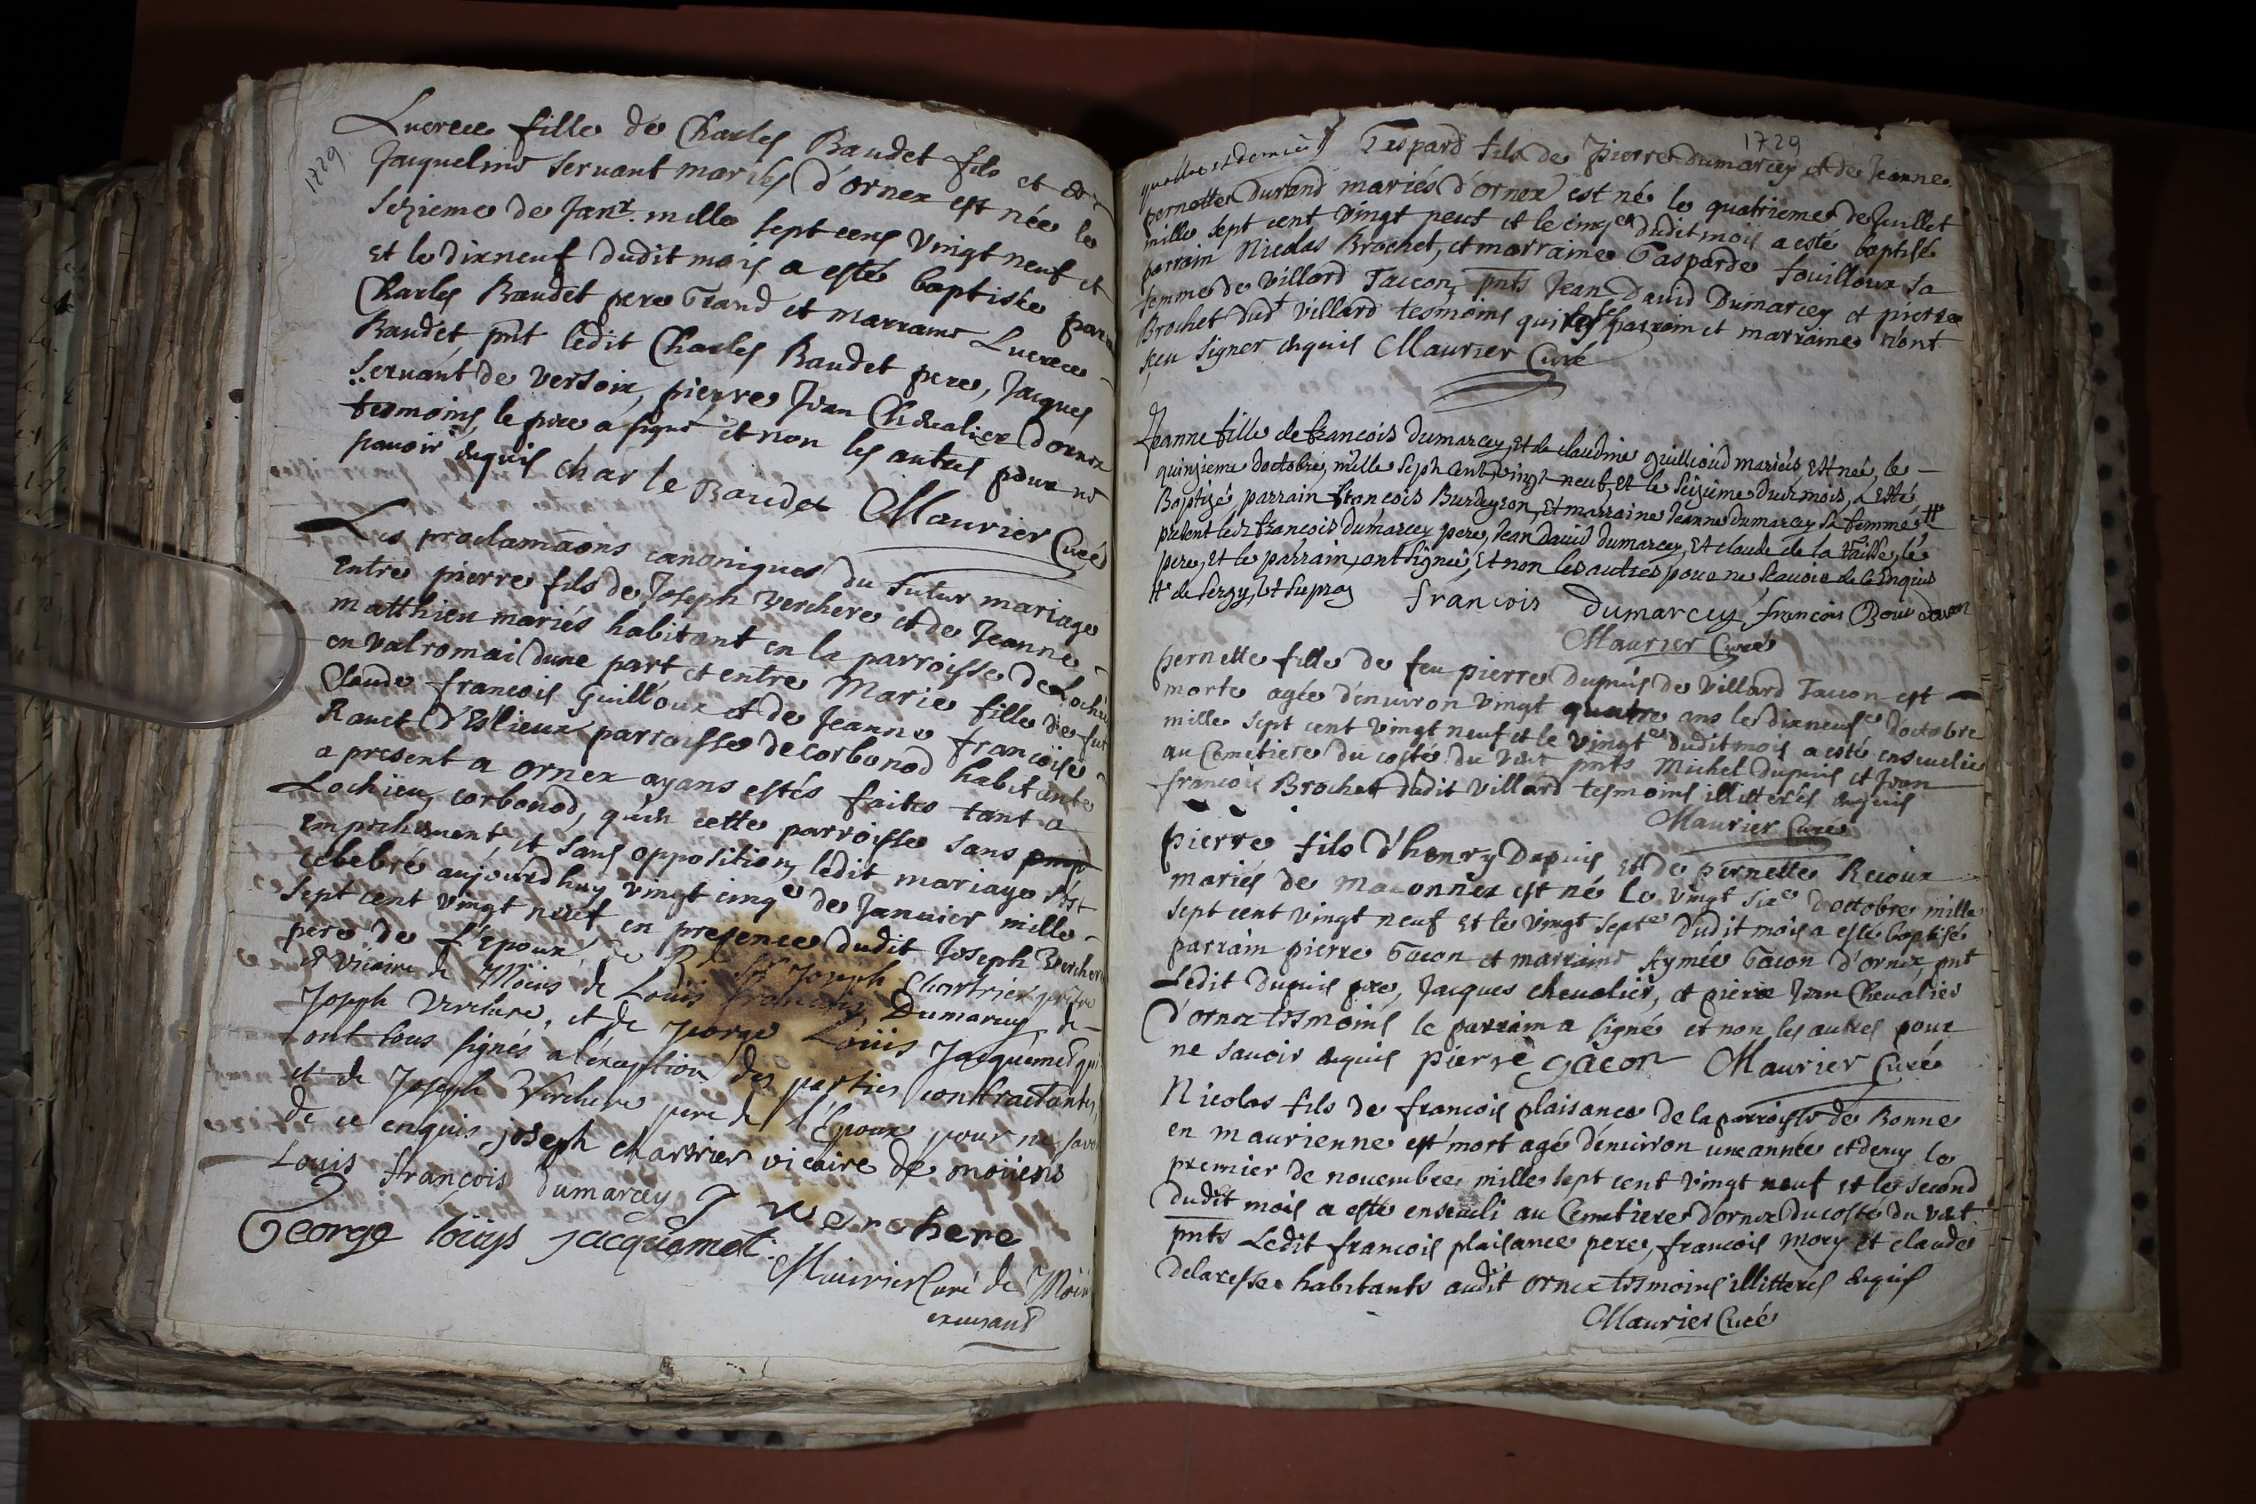 1729
Lucrece fille de Charles Baudet fils et de
Jacqueline Seruant mariés d'ornex est née le
Sezieme de Janr. mille sept cens vingt neuf et
et le dixneuf dudit mois a esté baptisée
Charles Baudet pere Grand et marraine Lucrece
Baudet pnt ledit Charles Baudet pere, Jacques
Seruant de versoix, pierre Jean Chevalier d'ornex
tesmoins, le pere a signé et non les autres pour ne
scavoir enquis Charle Baudet Maurier Curé
Les proclamaons canoniques du futur mariage
Entre pierre fils de Joseph Verchere et de Jeanne
matthieu mariés habitant en la parroisse de Lochieu
en valromai dune part et entre Marie fille de feu
Claude francois Guilloux et de Jeanne francoise
Ranet d'Eslieux parroisse de corbonod habitante
a present a ornex ayans estés faites tant a
Lochieu, corbonod, qu'en cette parroisse sans
empechement, et sans opposition, ledit mariage s'est
celebré aujourd'huy vingt cinqe de Januier mille
sept cent vingt neuf en presence dudit Joseph Verchere
pere de l'Epoux, de Rd Sr Joseph Chartrier prêtre
et Vicaire de Möens de Loüis francois Dumarcey de
Joseph Verchere, et de George Loüis Jacquemet qui
ont tous signés a l'exception des parties contractantes,
et de Joseph Verchere pere de l'Epoux pour ne savoir
de ce enquis joseph chartrier vicaire de moüens
Louis françois dumarcey J verchere
George loüys jacquemet
Maurier Curé de Möens
1729
Gaspard fils de Pierre dumarcey et de Jeanne
pernette Durand mariés d'ornex est né le quatrieme de Juillet
mille sept cent vingt neuf et le cinqe dudit mois a esté baptisé
parrain Nicolas Brochet, et marraine Gasparde fouilloux sa
femme de villard Taccon, pnts Jean David Dumarcey et pierre
Brochet dudt villard tesmoins qui parrain et marraine n'ont
sceu signer enquis Maurier Curé
Jeanne fille de francois dumarcey, et de claudine guillioud mariés, est née, le
quinzieme doctobre, mille sept cent vingt neuf, et le seizieme dud mois, a esté
Baptizé, parrain francois Burdeyron, et marraine Jeanne dumarcey sa femme #
present led francois dumarcey pere, Jean david dumarcey, et claude de la raisse, le
pere, et le parrain, ont signé, et non les autres pour ne scavoir de ce enquis
# de sergy, françois dumarcey, francois
Maurier Curé
pernette fille de feu pierre Dupuis de villard Taccon est
morte agée d'enuiron vingt quatre ans le dixneufe d'octobre
mille sept cent vingt neuf et le vingte dudit mois a esté enseuelie
au Cemetiere du costé du vent pnts Michel dupuis et Jean
francois Brochet dudit villard tesmoins illitterés enquis
Maurier Curé
pierre fils d'henry Dupuis et de pernette Recoux
mariés de maconnex est né le vingt sixe d'octobre mille
sept cent vingt neuf et le vingt septe dudit mois a esté baptisé
parrain pierre Gacon et marraine Aymée Gacon d'ornex, pnt
Ledit dupuis pere, Jacques chevalier, et pierre Jean Chevalier
d'ornex tesmoins le parrain a signé et non les autres pour
ne savoir enquis pierre gacon Maurier Curé
Nicolas fils de francois plaisance de la parroisse de Bonne
en maurienne est mort agé d'enuiron une année et demy le
premier de nouembre mille sept cent vingt neuf et le second
dudit mois a esté enseueli au Cemetiere d'ornex du costé du vent
pnts Ledit francois plaisance pere, francois mory et claude
delaresse habitants audit ornex tesmoins illitterés enquis
Maurier Curé